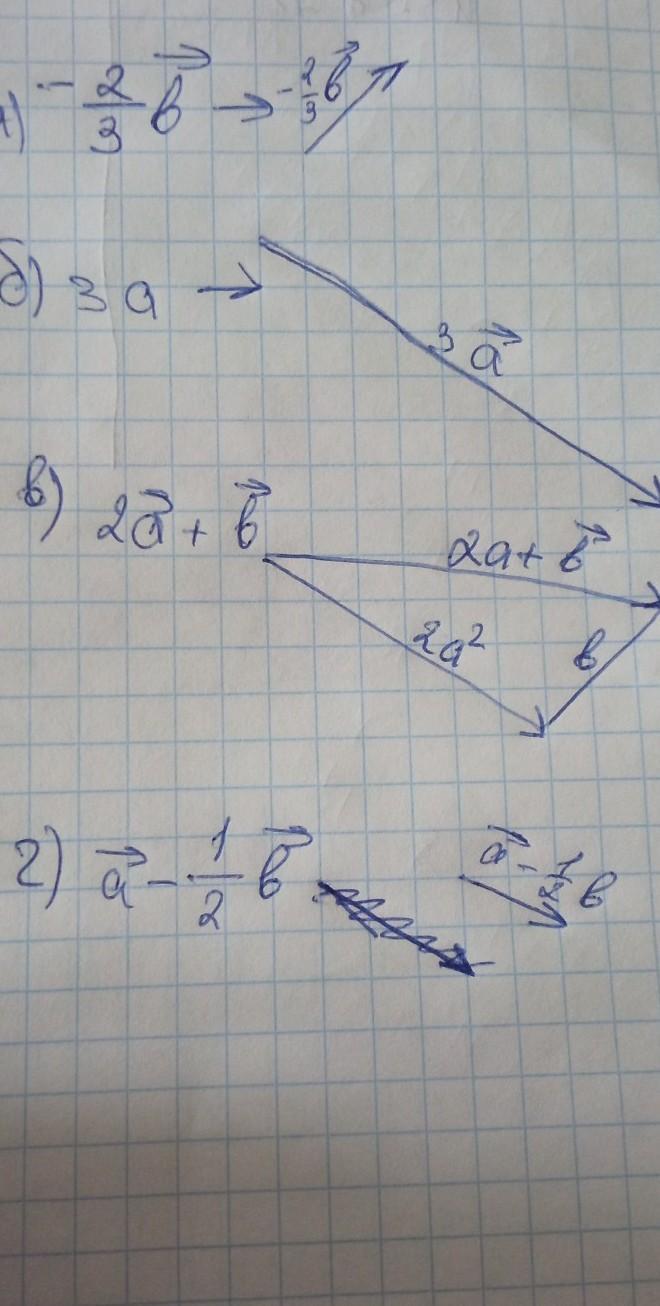 а) -2/3 b⃗ → -2/3 b⃗
б) 3 a → 3 a⃗
в) 2a⃗ + b⃗
2a + b⃗
2a² b
г) a⃗ - 1/2 b⃗ a⃗ - 1/2 b